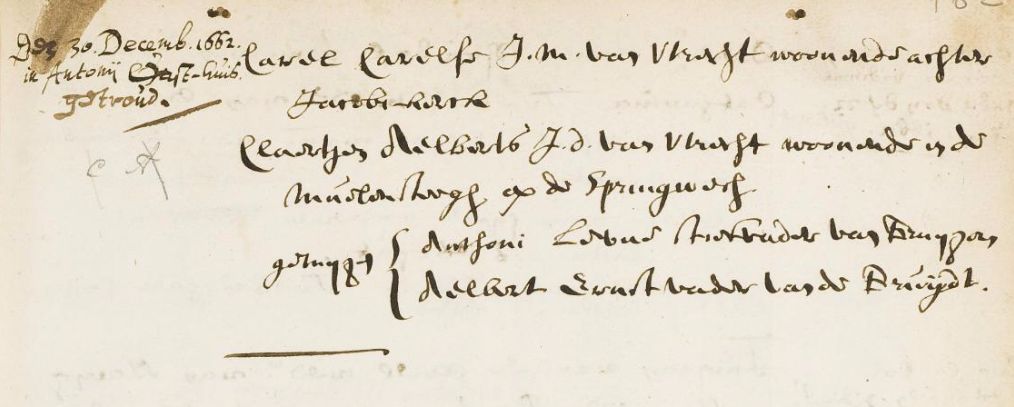 Den 30. Decemb. 1662.
in Antonij Gast-huis
getroud.
Carel Carelse J.M. van Utrecht woonende achter
Jacobi-kerck
Claertjen Aelberts J.d. van Utrecht woonende in de
Muelensteegh op de Springwech
getuijg
Anthoni stiefvader van Bruijgom
Aelbert Ernst vader van de Bruijdt.